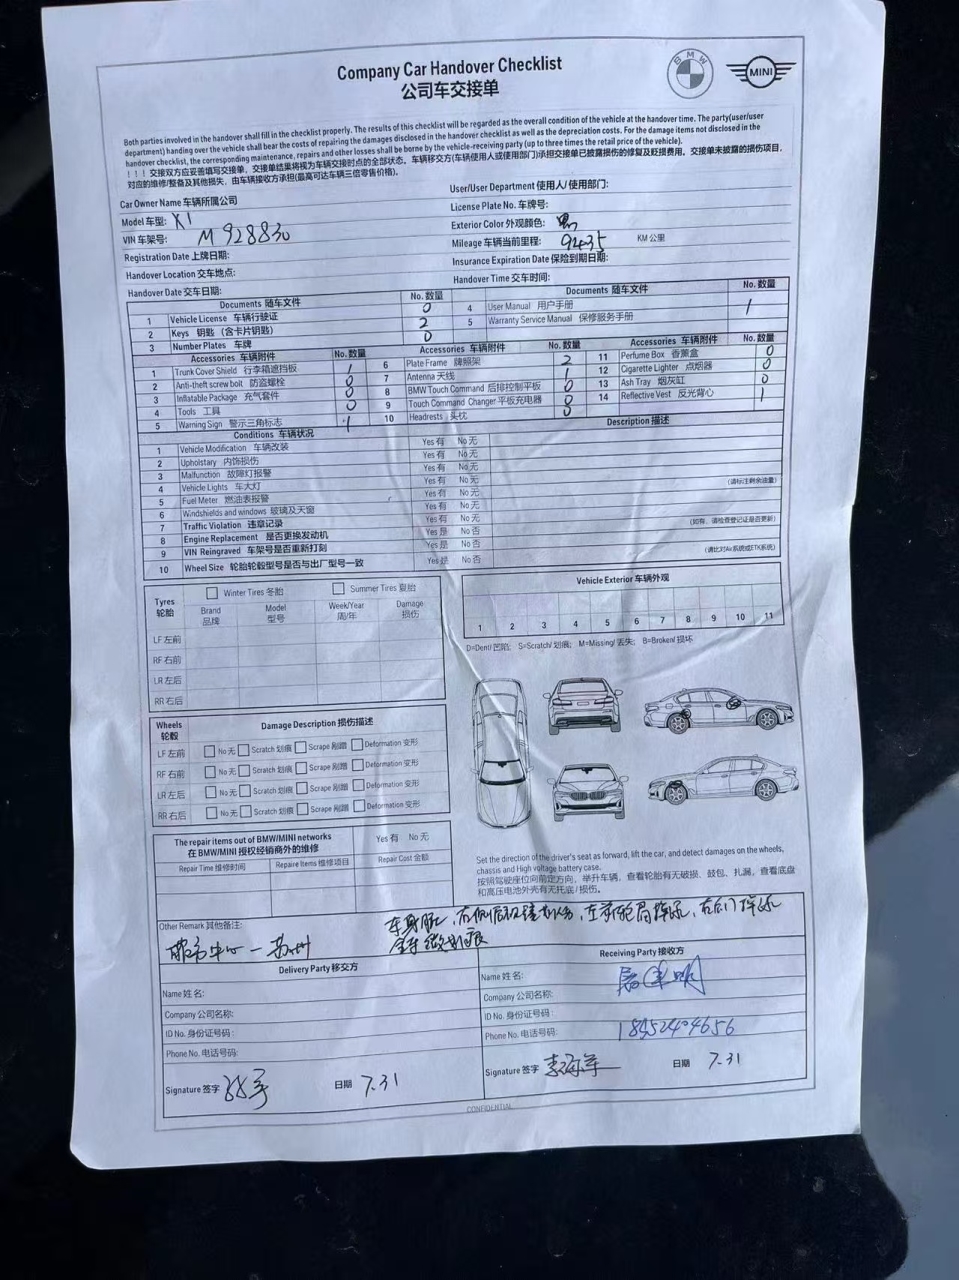 Company Car Handover Checklist
公司车交接单
BMW
MINI
Both parties involved in the handover shall fill in the checklist properly. The results of this checklist will be regarded as the overall condition of the vehicle at the handover time. The party(user/user
department) handing over the vehicle shall bear the costs of repairing the damages disclosed in the handover checklist as well as the depreciation costs. For the damage items not disclosed in the
handover checklist, the corresponding maintenance, repairs and other losses shall be borne by the vehicle-receiving party (up to three times the retail price of the vehicle).
!!! 交接双方应妥善填写交接单，交接结果将视为车辆交接时点的全部状态。车辆移交方(车辆使用人或使用部门)承担交接单已披露损伤的修复及贬损费用。交接单未披露的损伤项目，
对应的维修/整备及其他损失，由车辆接收方承担(最高可达车辆三倍零售价格)。
Car Owner Name 车辆所属公司
User/User Department 使用人/使用部门:
Model 车型: X1
License Plate No. 车牌号:
VIN 车架号: M 928830
Exterior Color 外观颜色: 黑
Registration Date 上牌日期:
Mileage 车辆当前里程: 9435 KM 公里
Handover Location 交车地点:
Insurance Expiration Date 保险到期日期:
Handover Date 交车日期:
Handover Time 交车时间:
Documents 随车文件 No. 数量 Documents 随车文件 No. 数量
1 Vehicle License 车辆行驶证 0 4 User Manual 用户手册 1
2 Keys 钥匙（含卡片钥匙） 2 5 Warranty Service Manual 保修服务手册
3 Number Plates 车牌 0
Accessories 车辆附件 No. 数量 Accessories 车辆附件 No. 数量 Accessories 车辆附件 No. 数量
1 Trunk Cover Shield 行李箱遮挡板 1 6 Plate Frame 牌照架 2 11 Perfume Box 香薰盒 0
2 Anti-theft screw bolt 防盗螺栓 0 7 Antenna 天线 1 12 Cigarette Lighter 点烟器 0
3 Inflatable Package 充气套件 0 8 BMW Touch Command 后排控制平板 0 13 Ash Tray 烟灰缸 0
4 Tools 工具 0 9 Touch Command Changer 平板充电器 0 14 Reflective Vest 反光背心 1
5 Warning Sign 警示三角标志 1 10 Headrests 头枕 0
Conditions 车辆状况 Description 描述
1 Vehicle Modification 车辆改装 Yes 有 No 无
2 Upholstary 内饰损伤 Yes 有 No 无
3 Malfunction 故障灯报警 Yes 有 No 无
4 Vehicle Lights 车大灯 Yes 有 No 无
5 Fuel Meter 燃油表报警 Yes 有 No 无 (请标注剩余油量)
6 Windshields and windows 玻璃及天窗 Yes 有 No 无
7 Traffic Violation 违章记录 Yes 有 No 无
8 Engine Replacement 是否更换发动机 Yes 是 No 否 (如有，请检查登记证是否更新)
9 VIN Reingraved 车架号是否重新打刻 Yes 是 No 否
10 Wheel Size 轮胎轮毂型号是否与出厂型号一致 Yes 是 No 否 (请比对Air系统或ETK系统)
Tyres 轮胎
Winter Tires 冬胎 Summer Tires 夏胎
Brand 品牌 Model 型号 Week/Year 周/年 Damage 损伤
LF 左前
RF 右前
LR 左后
RR 右后
Vehicle Exterior 车辆外观
1 2 3 4 5 6 7 8 9 10 11
D=Dent/ 凹陷; S=Scratch/ 划痕; M=Missing/ 丢失; B=Broken/ 损坏
Wheels 轮毂
Damage Description 损伤描述
LF 左前 No 无 Scratch 划痕 Scrape 剐蹭 Deformation 变形
RF 右前 No 无 Scratch 划痕 Scrape 剐蹭 Deformation 变形
LR 左后 No 无 Scratch 划痕 Scrape 剐蹭 Deformation 变形
RR 右后 No 无 Scratch 划痕 Scrape 剐蹭 Deformation 变形
The repair items out of BMW/MINI networks
在 BMW/MINI 授权经销商外的维修
Yes 有 No 无
Repair Time 维修时间 Repaire Items 维修项目 Repair Cost 金额
Set the direction of the driver's seat as forward, lift the car, and detect damages on the wheels,
chassis and High voltage battery case.
按照驾驶座位向前定方向，举升车辆，查看轮胎有无破损、鼓包、扎漏，查看底盘
和高压电池外壳有无托底 / 损伤。
Other Remark 其他备注:
车身脏，右侧后视镜
服务中心－苏州
Delivery Party 移交方
Receiving Party 接收方
Name 姓名:
Name 姓名:
Company 公司名称:
Company 公司名称:
ID No. 身份证号码:
ID No. 身份证号码:
Phone No. 电话号码:
Phone No. 电话号码: 18452404656
Signature 签字 日期 7.31
Signature 签字 日期 7.31
CONFIDENTIAL